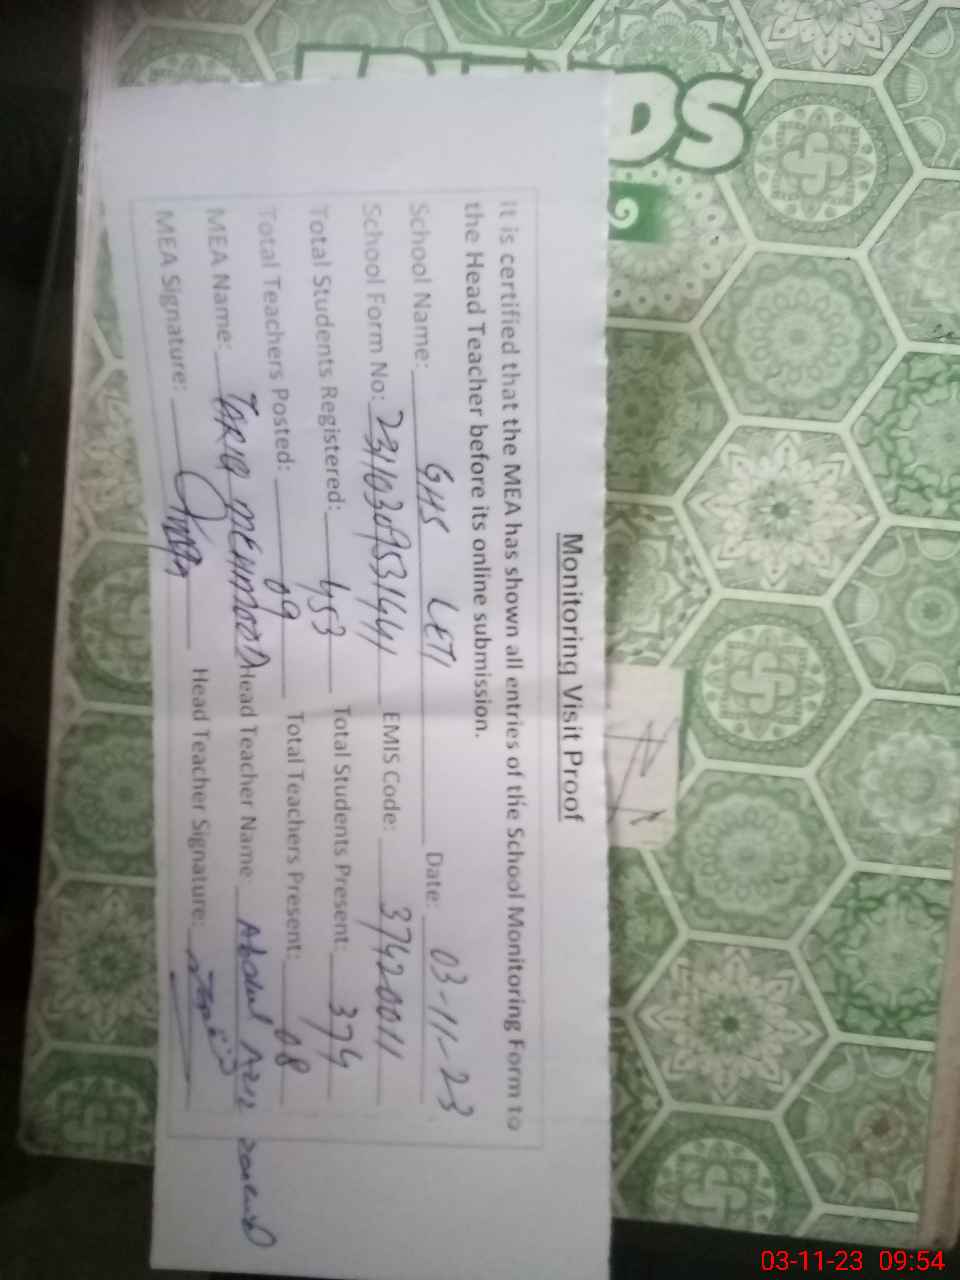 Monitoring Visit Proof
It is certified that the MEA has shown all entries of the School Monitoring Form to
the Head Teacher before its online submission.
School Name: GHS LETI Date: 03-11-23
School Form No: EMIS Code: 37420011
Total Students Registered: 453 Total Students Present: 374
Total Teachers Posted: 09 Total Teachers Present: 08
MEA Name: TARIQ MEHMOOD Head Teacher Name: Abdul Aziz
MEA Signature: Head Teacher Signature:
DS
03-11-23 09:54